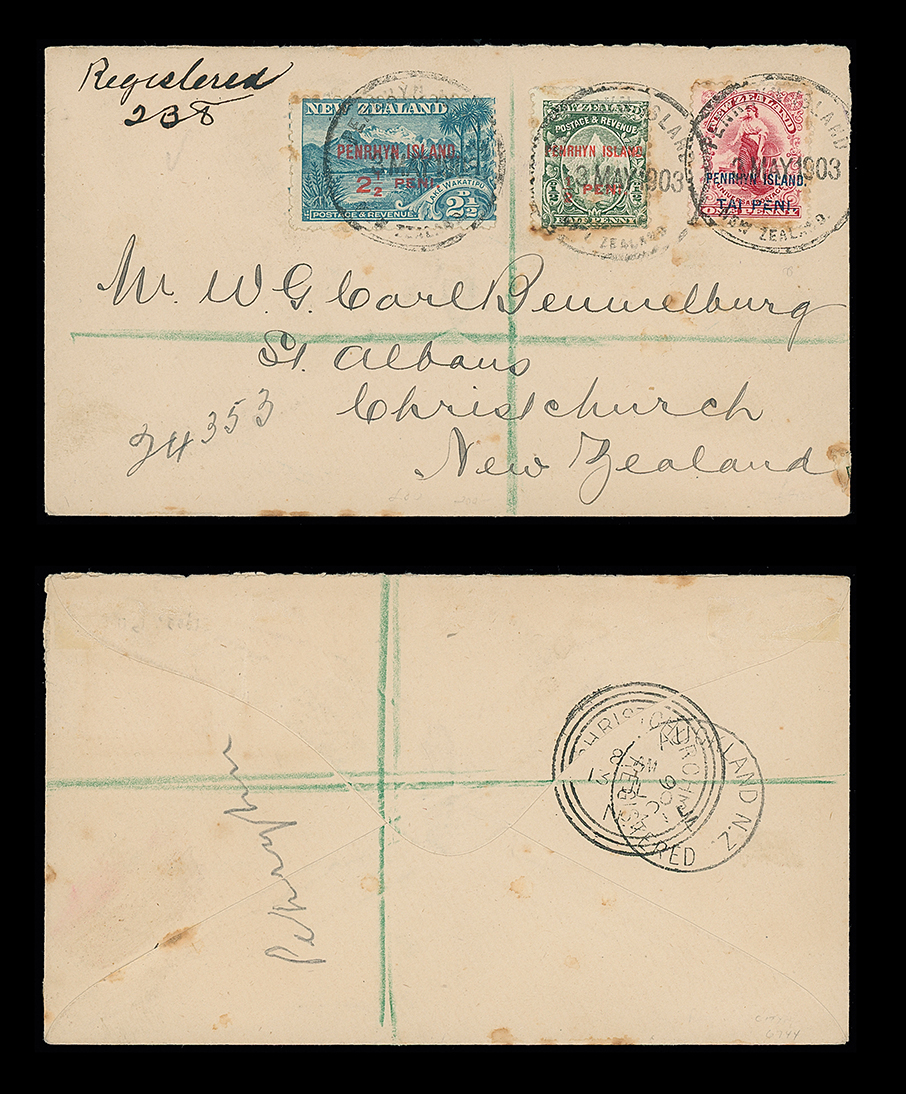 Registered
238
NEW ZEALAND
PENRHYN ISLAND.
2½ PENI.
LAKE WAKATIPU
POSTAGE & REVENUE.
2½D
NEW ZEALAND
POSTAGE & REVENUE
PENRHYN ISLAND.
½ PENI.
HALF PENNY
3 MAY 1903
NEW ZEALAND.
NEW ZEALAND
PENRHYN ISLAND.
TAI PENI.
ONE PENNY
PENRHYN ISLAND
3 MAY 1903
NEW ZEALAND.
Mr. W. G. Carl Bemmelburg
St. Albans
Christchurch
New Zealand
24353
Penrhyn
CHRISTCHURCH
AUCKLAND N.Z.
REGISTERED